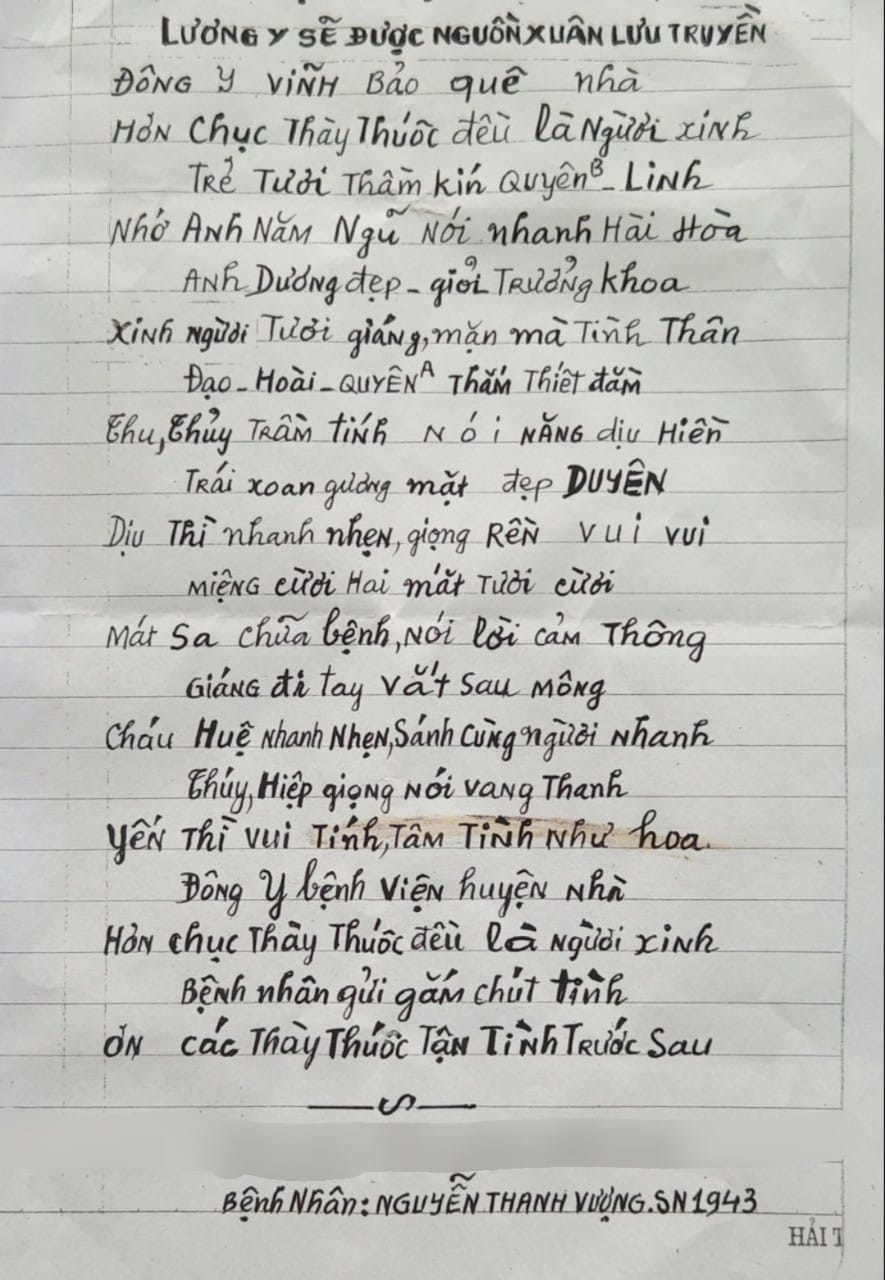 LƯƠNG Y SẼ ĐƯỢC NGUỒN XUÂN LƯU TRUYỀN
ĐÔNG Y VĨNH BẢO quê nhà
HƠN chục Thày Thuốc đều là Người xinh
TRẺ Tươi Thầm kín QUYÊN B - Linh
Nhớ Anh Năm Ngũ Nói nhanh Hài Hòa
Anh Dương đẹp - giỏi Trưởng khoa
Xinh người Tươi giáng, mặn mà Tình Thân
Đạo - Hoài - QUYÊN A Thắm Thiết đằm
Thu, Thủy TRẦM tính Nói NĂNG dịu Hiền
Trái xoan gương mặt đẹp DUYÊN
Dịu Thì nhanh nhẹn, giọng RỀN vui vui
Miệng cười Hai mắt Tươi cười
Mát Sa chữa bệnh, Nói lời cảm Thông
Giáng đi tay vắt sau mông
Cháu Huệ Nhanh Nhẹn, Sánh cùng người Nhanh
Thúy, Hiệp giọng Nói vang Thanh
Yến Thì vui Tính, Tâm Tình Như hoa.
Đông Y bệnh viện huyện nhà
Hơn chục Thày Thuốc đều là Người xinh
Bệnh nhân gửi gắm chút tình
ƠN các Thày Thuốc Tận Tình Trước Sau
Bệnh Nhân: NGUYỄN THANH VƯỢNG. SN 1943
HẢI T